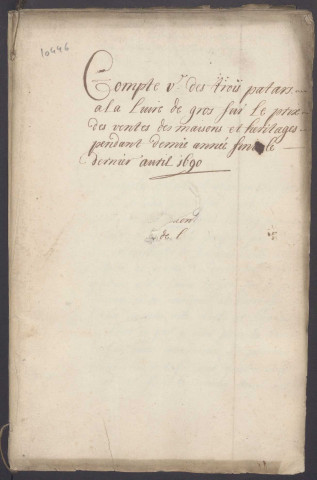 10446
Compte v.e des trois patars
a la livre de gros sur le prix
des ventes des maisons et heritages
pendant demie année finie le
dernier avril 1690
de l